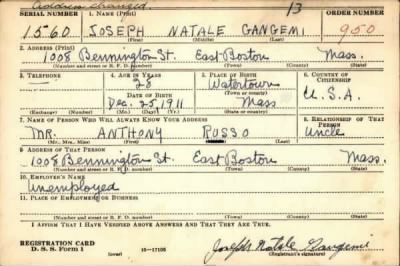 Address changed. 13
SERIAL NUMBER 1. NAME (Print) ORDER NUMBER
1560 JOSEPH NATALE GANGEMI 950
(First) (Middle) (Last)
2. ADDRESS (Print)
1008 Bennington St. East Boston Mass.
(Number and street or R. F. D. number) (Town) (County) (State)
3. TELEPHONE 4. AGE IN YEARS 5. PLACE OF BIRTH 6. COUNTRY OF CITIZENSHIP
— 28 Watertown
DATE OF BIRTH (Town or county)
Dec. 25, 1911 Mass U.S.A.
(Exchange) (Number) (Mo.) (Day) (Yr.) (State or country)
7. NAME OF PERSON WHO WILL ALWAYS KNOW YOUR ADDRESS 8. RELATIONSHIP OF THAT PERSON
MR. ANTHONY RUSSO Uncle
(Mr., Mrs., Miss) (First) (Middle) (Last)
9. ADDRESS OF THAT PERSON
1008 Bennington St. East Boston Mass.
(Number and street or R. F. D. number) (Town) (County) (State)
10. EMPLOYER'S NAME
Unemployed
11. PLACE OF EMPLOYMENT OR BUSINESS
(Number and street or R. F. D. number) (Town) (County) (State)
I AFFIRM THAT I HAVE VERIFIED ABOVE ANSWERS AND THAT THEY ARE TRUE.
REGISTRATION CARD
D. S. S. Form 1 16—17105 Joseph Natale Gangemi
(over) (Registrant's signature)